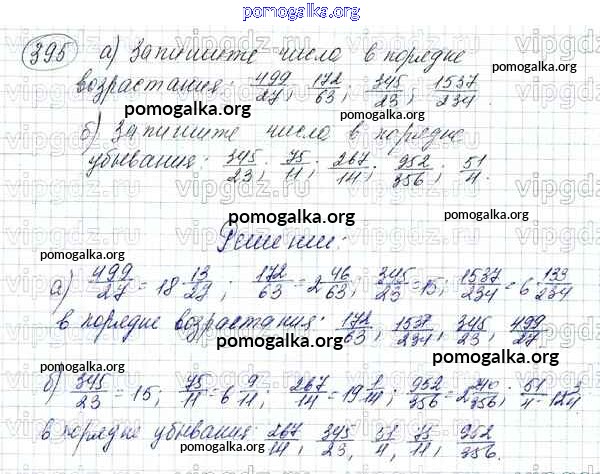 pomogalka.org
395 а) Запишите числа в порядке
возрастания: 499/27; 172/63; 345/23; 1537/234.
pomogalka.org pomogalka.org
б) Запишите числа в порядке
убывания: 345/23; 75/11; 267/14; 952/356; 51/4.
pomogalka.org
Решение:
pomogalka.org pomogalka.org
а) 499/27 = 18 13/27; 172/63 = 2 46/63; 345/23 = 15; 1537/234 = 6 133/234
в порядке возрастания: 172/63, 1537/234, 345/23, 499/27
pomogalka.org pomogalka.org
б) 345/23 = 15; 75/11 = 6 9/11; 267/14 = 19 1/14; 952/356 = 2 240/356; 51/4 = 12 3/4
в порядке убывания: 267/14, 345/23, 51/4, 75/11, 952/356.
pomogalka.org pomogalka.org